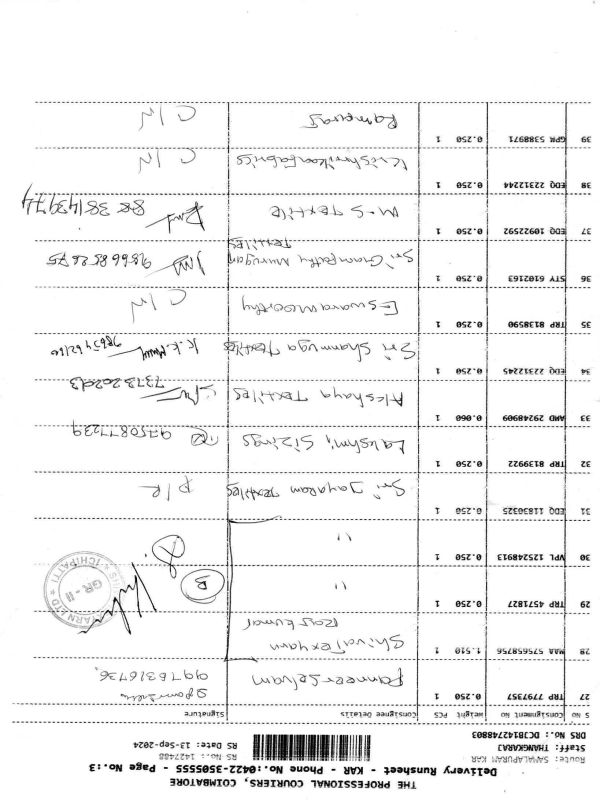 THE PROFESSIONAL COURIERS, COIMBATORE
Delivery Runsheet - KAR - Phone No.:0422-3505555 - Page No.:3
Route: SAMALAPURAM KAR RS No.: 1427488
Staff: THANGKARAJ RS Date: 13-Sep-2024
DRS No.: DCJB142748803
S NO Consignment No Weight PCS Consignee Details Signature
27 TRP 7797357 0.250 1 Panneerselvam 9976316736
28 MAA 575658756 1.510 1 Shiva Texyarn
Raj kumar
29 TRP 4571827 0.250 1 " B
30 VPL 125248913 0.250 1 "
YARN LTD ICHIPATTI GR - II
31 EDQ 11830325 0.250 1 Sri Jayaram Textiles P/R
32 TRP 8139922 0.250 1 Lakshmi Sizings 9750877239
33 AMD 29248909 0.060 1 Akshaya Textiles
34 EDQ 22312245 0.250 1 Sri Shanmuga Textiles
35 TRP 8138590 0.250 1 Eswaramoorthy C/N
36 STY 6102163 0.250 1 Sri Ganapathy Murugan
Textiles 9866852675
37 EDQ 10922592 0.250 1 M.S Textile
38 EDQ 22312244 0.250 1 C/N
39 GPM 5388971 0.250 1 Ramparas C/N